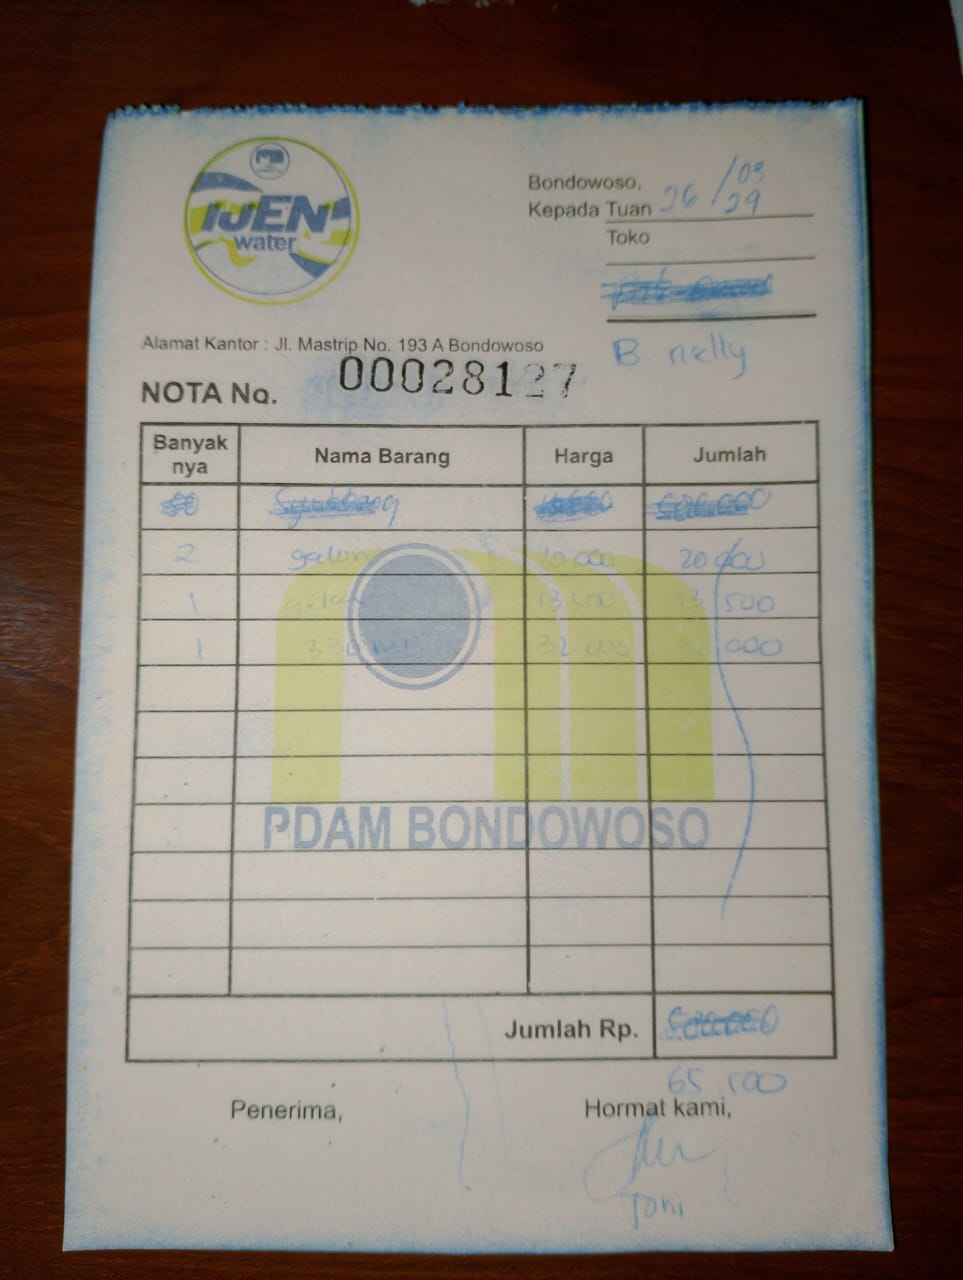 IJEN
water
Bondowoso,
26/03
Kepada Tuan 29
Toko
B. nelly
Alamat Kantor : Jl. Mastrip No. 193 A Bondowoso
NOTA No. 00028127
Banyak nya Nama Barang Harga Jumlah
2 galon 10 000 20 000
1 13 500 13 500
1 330 ml 32 000 32 000
PDAM BONDOWOSO
Jumlah Rp.
65 500
Penerima, Hormat kami,
Toni